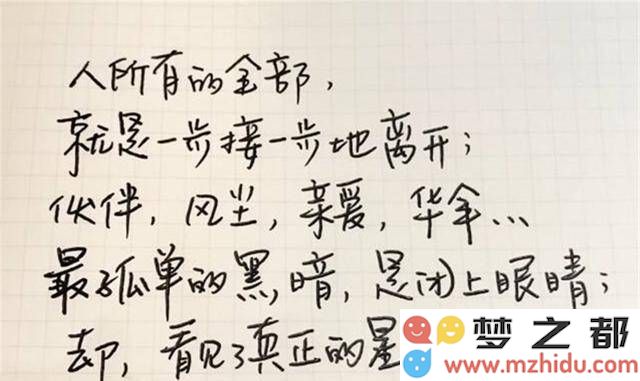 人所有的全部，
就是一步接一步地离开；
伙伴，风尘，亲爱，华伞…
最孤单的黑暗，是闭上眼睛；
却，看见了真正的星
梦之都
www.mzhidu.com